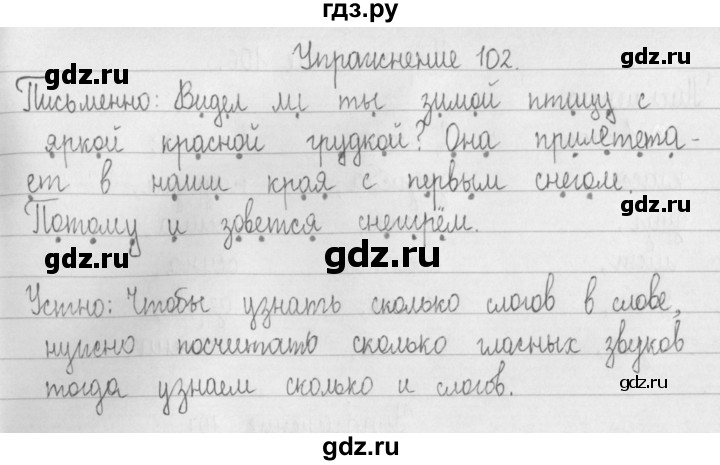 гдз.ру
Упражнение 102.
gdz.ru gdz.ru
Письменно: Видел ли ты зимой птицу с
яркой красной грудкой? Она прилетета-
gdz.ru gdz.ru
ет в наши края с первым снегом.
gdz.ru gdz.ru
Потому и зовется снегирём.
gdz.ru
Устно: Чтобы узнать сколько слогов в слове,
gdz.ru gdz.ru
нужно посчитать сколько гласных звуков
тогда узнаем сколько и слогов.
gdz.ru
gdz.ru gdz.ru
gdz.ru